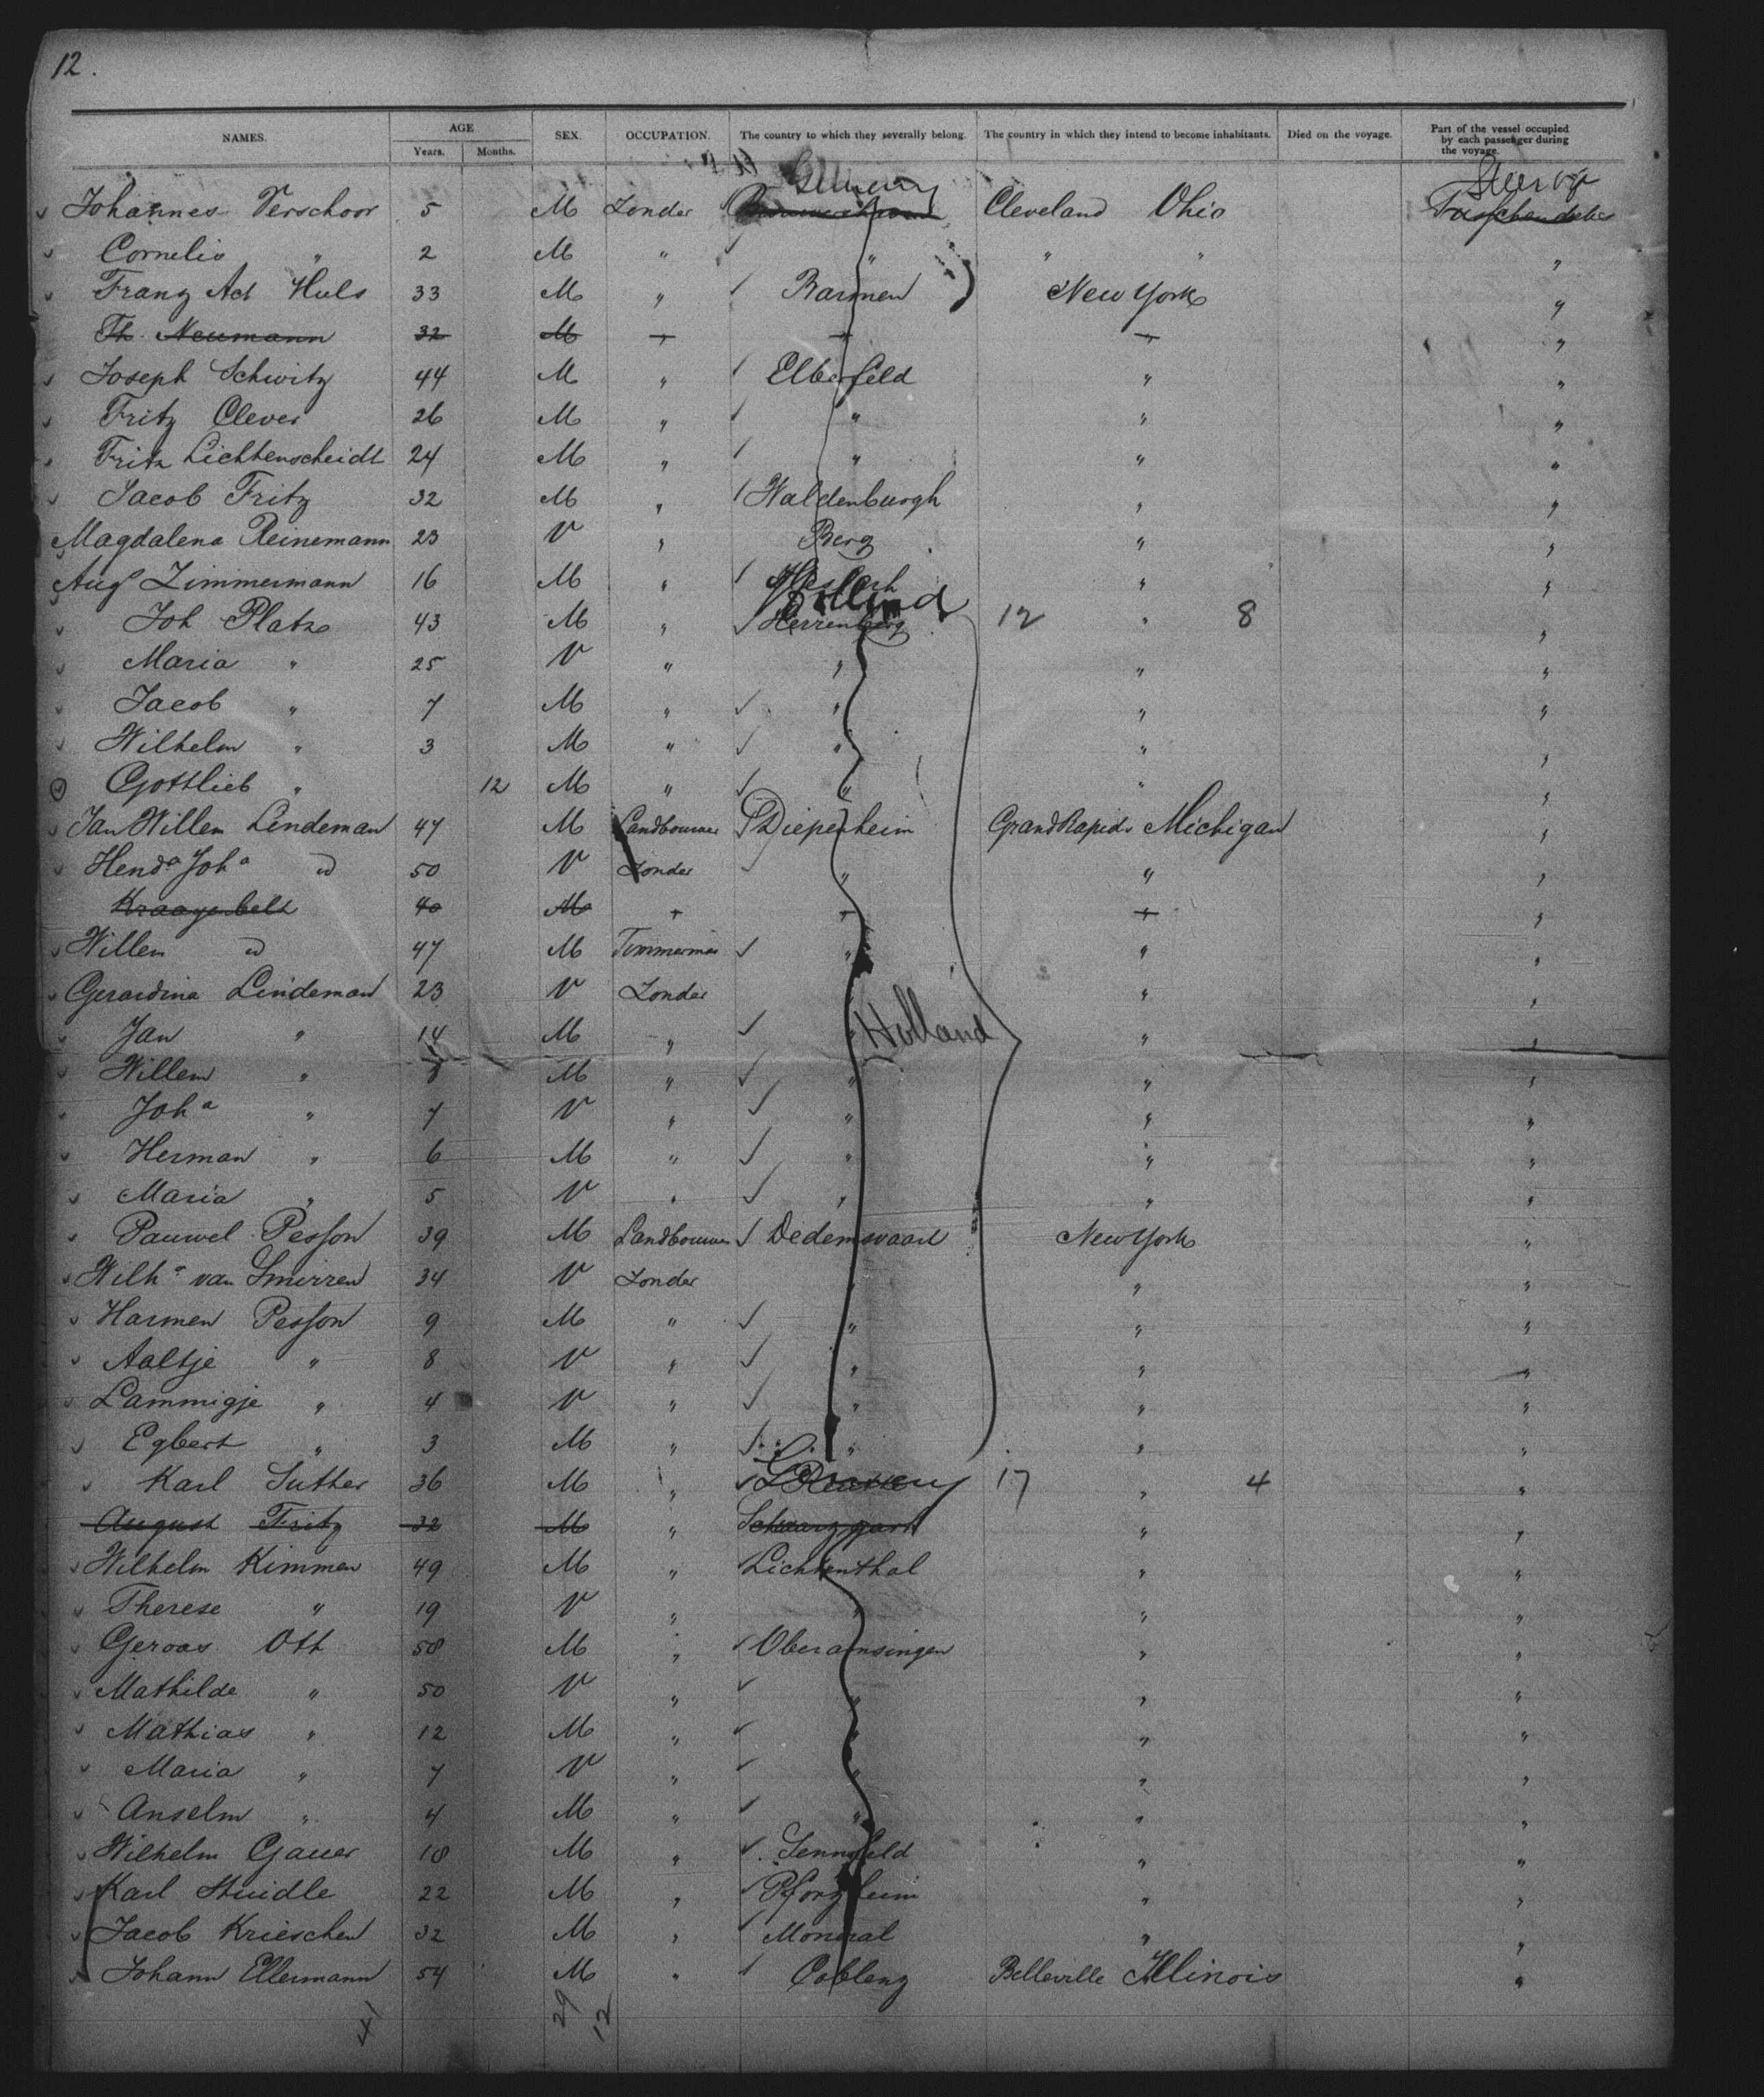 12.
NAMES. AGE Years. Months. SEX. OCCUPATION. The country to which they severally belong. The country in which they intend to become inhabitants. Died on the voyage. Part of the vessel occupied by each passenger during the voyage.
Germany
Johannes Verschoor 5 M Zonder Cleveland Ohio Tusschendeks
Cornelis " 2 M " " " " "
Franz Ad Huls 33 M " Barmen New York "
Th. Neumann 32 M " " " "
Joseph Schwitz 44 M " Elberfeld " "
Fritz Clever 26 M " " " "
Fritz Lichtenscheidt 24 M " " " "
Jacob Fritz 32 M " Waldenburgh " "
Magdalena Reinemann 23 V " Berg " "
Aug Zimmermann 16 M " " "
Holland
Joh Platz 43 M " Herrenberg 12 " 8 "
Maria " 25 V " " " "
Jacob " 7 M " " " "
Wilhelm " 3 M " " " "
Gottlieb " 12 M " " " "
Jan Willem Lindeman 47 M Landbouwer Diepenheim Grand Rapids Michigan "
Henda Joha id 50 V Zonder " " "
40 M " " " "
Willem id 47 M Timmerman " " "
Gerardina Lindeman 23 V Zonder " "
Jan " 14 M " " Holland " "
Willem " 8 M " " " "
Joha " 7 V " " " "
Herman " 6 M " " " "
Maria " 5 V " " " "
Pauwel Pesson 39 M Landbouwer Dedemsvaart New York "
Wilha van Smirren 34 V Zonder " "
Harmen Pesson 9 M " " " "
Aaltje " 8 V " " " "
Lammigje " 4 V " " " "
Egbert " 3 M " " " "
Karl Suther 36 M " 17 " 4 "
August Fritz 32 M " " "
Wilhelm Kimmen 49 M " Lichtenthal " "
Therese " 19 V " " " "
Gervas Ott 58 M " Oberamsingen " "
Mathilde " 50 V " " " "
Mathias " 12 M " " " "
Maria " 7 V " " " "
Anselm " 4 M " " " "
Wilhelm Gauer 18 M " Sennfeld " "
Karl 22 M " Pforzheim " "
Jacob Krieschen 32 M " Monreal " "
Johann Ellermann 54 M " Coblenz Belleville Illinois "
41 29 12